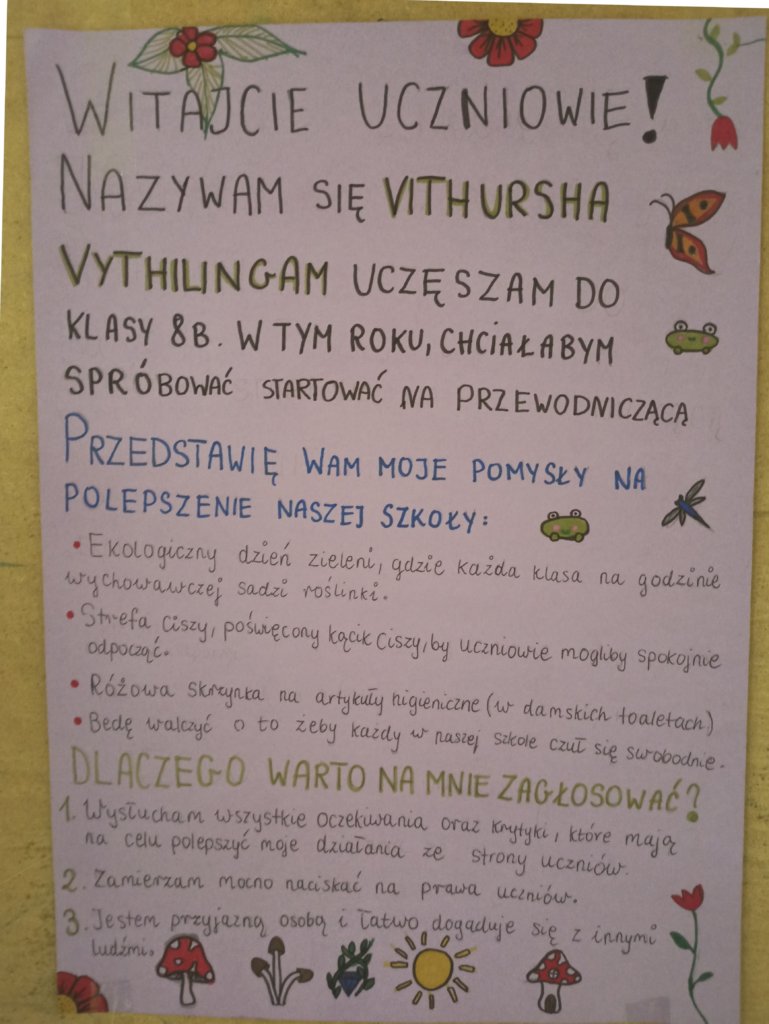 WITAJCIE UCZNIOWIE!
NAZYWAM SIĘ VITHURSHA
VYTHILINGAM UCZĘSZAM DO
KLASY 8B. W TYM ROKU, CHCIAŁABYM
SPRÓBOWAĆ STARTOWAĆ NA PRZEWODNICZĄCĄ
PRZEDSTAWIĘ WAM MOJE POMYSŁY NA
POLEPSZENIE NASZEJ SZKOŁY:
• Ekologiczny dzień zieleni, gdzie każda klasa na godzinie
wychowawczej sadzi roślinki.
• Strefa Ciszy, poświęcony kącik Ciszy, by uczniowie mogliby spokojnie
odpocząć.
• Różowa skrzynka na artykuły higieniczne (w damskich toaletach)
• Bedę walczyć o to żeby każdy w naszej szkole czuł się swobodnie.
DLACZEGO WARTO NA MNIE ZAGŁOSOWAĆ?
1. Wysłucham wszystkie oczekiwania oraz krytyki, które mają
na celu polepszyć moje działania ze strony uczniów.
2. Zamierzam mocno naciskać na prawa uczniów.
3. Jestem przyjazną osobą i łatwo dogaduje się z innymi
ludźmi.